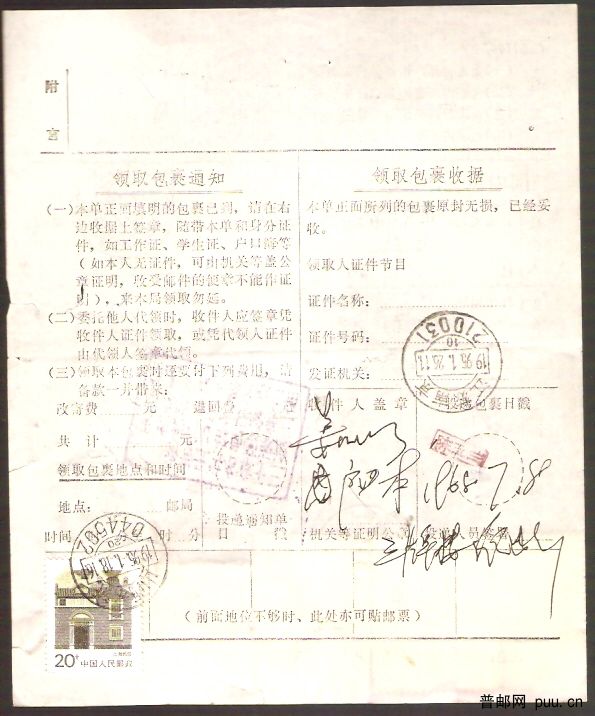 附
言
领取包裹通知
(一)本单正面填明的包裹已到,请在右
边收据上签章,随带本单和身分证
件,如工作证、学生证、户口簿等
(如本人无证件,可由机关等盖公
章证明,收受邮件的签章不能作证
明),来本局领取勿延。
(二)委托他人代领时,收件人应签章凭
收件人证件领取,或凭代领人证件
由代领人签章代领。
(三)领取本包裹时还要付下列费用,请
备款一并带来:
改寄费 元 退回费 元
共 计 元
领取包裹地点和时间
地点: 邮局
时间 时 分
投递通知单
日 戳
领取包裹收据
本单正面所列的包裹原封无损,已经妥
收。
领取人证件节目
证件名称:
证件号码:
发证机关:
收件人盖章
投递包裹日戳
机关等证明公章
投递人员签章
(前面地位不够时、此处亦可贴邮票)
210031
1996.1.26.11
044502
1996.1.18.16
20分
中国人民邮政
普邮网 puu.cn